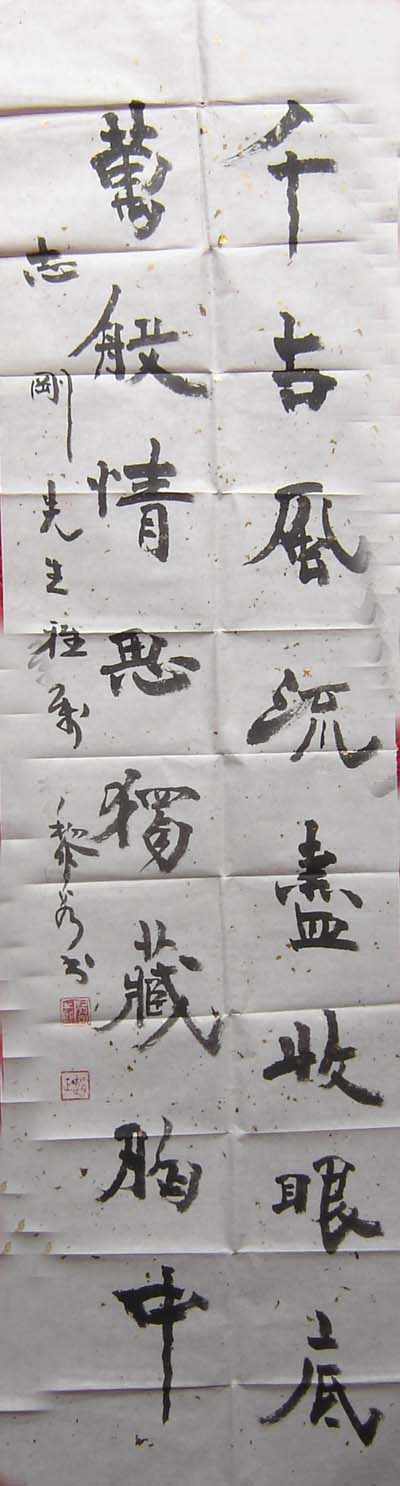 千古風流盡收眼底
萬般情思獨藏胸中
志剛先生雅屬
黎
书